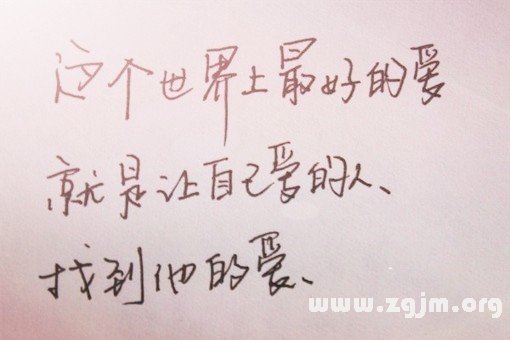 这个世界上最好的爱
就是让自己爱的人、
找到他的爱、
www.zgjm.org